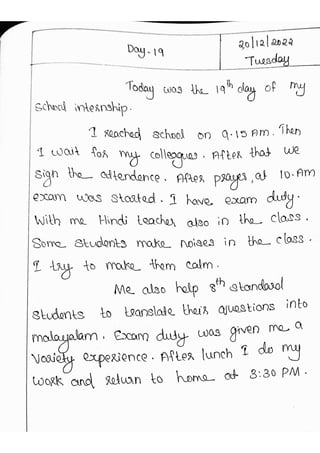 Day-19
20/12/2022
Tuesday
Today was the 19th day of my
School internship.
I reached school on 9.15 Am. Then
I wait for my colleagues. After that we
sign the attendence. After prayer, at 10.Am
exam was started. I have exam duty.
With me Hindi teacher also in the class.
Some students make noises in the class.
I try to make them calm.
Me also help 8th standard
students to translate their questions into
malayalam. Exam duty was given me a
Variety experience. After lunch I do my
work and return to home at 3:30 PM.